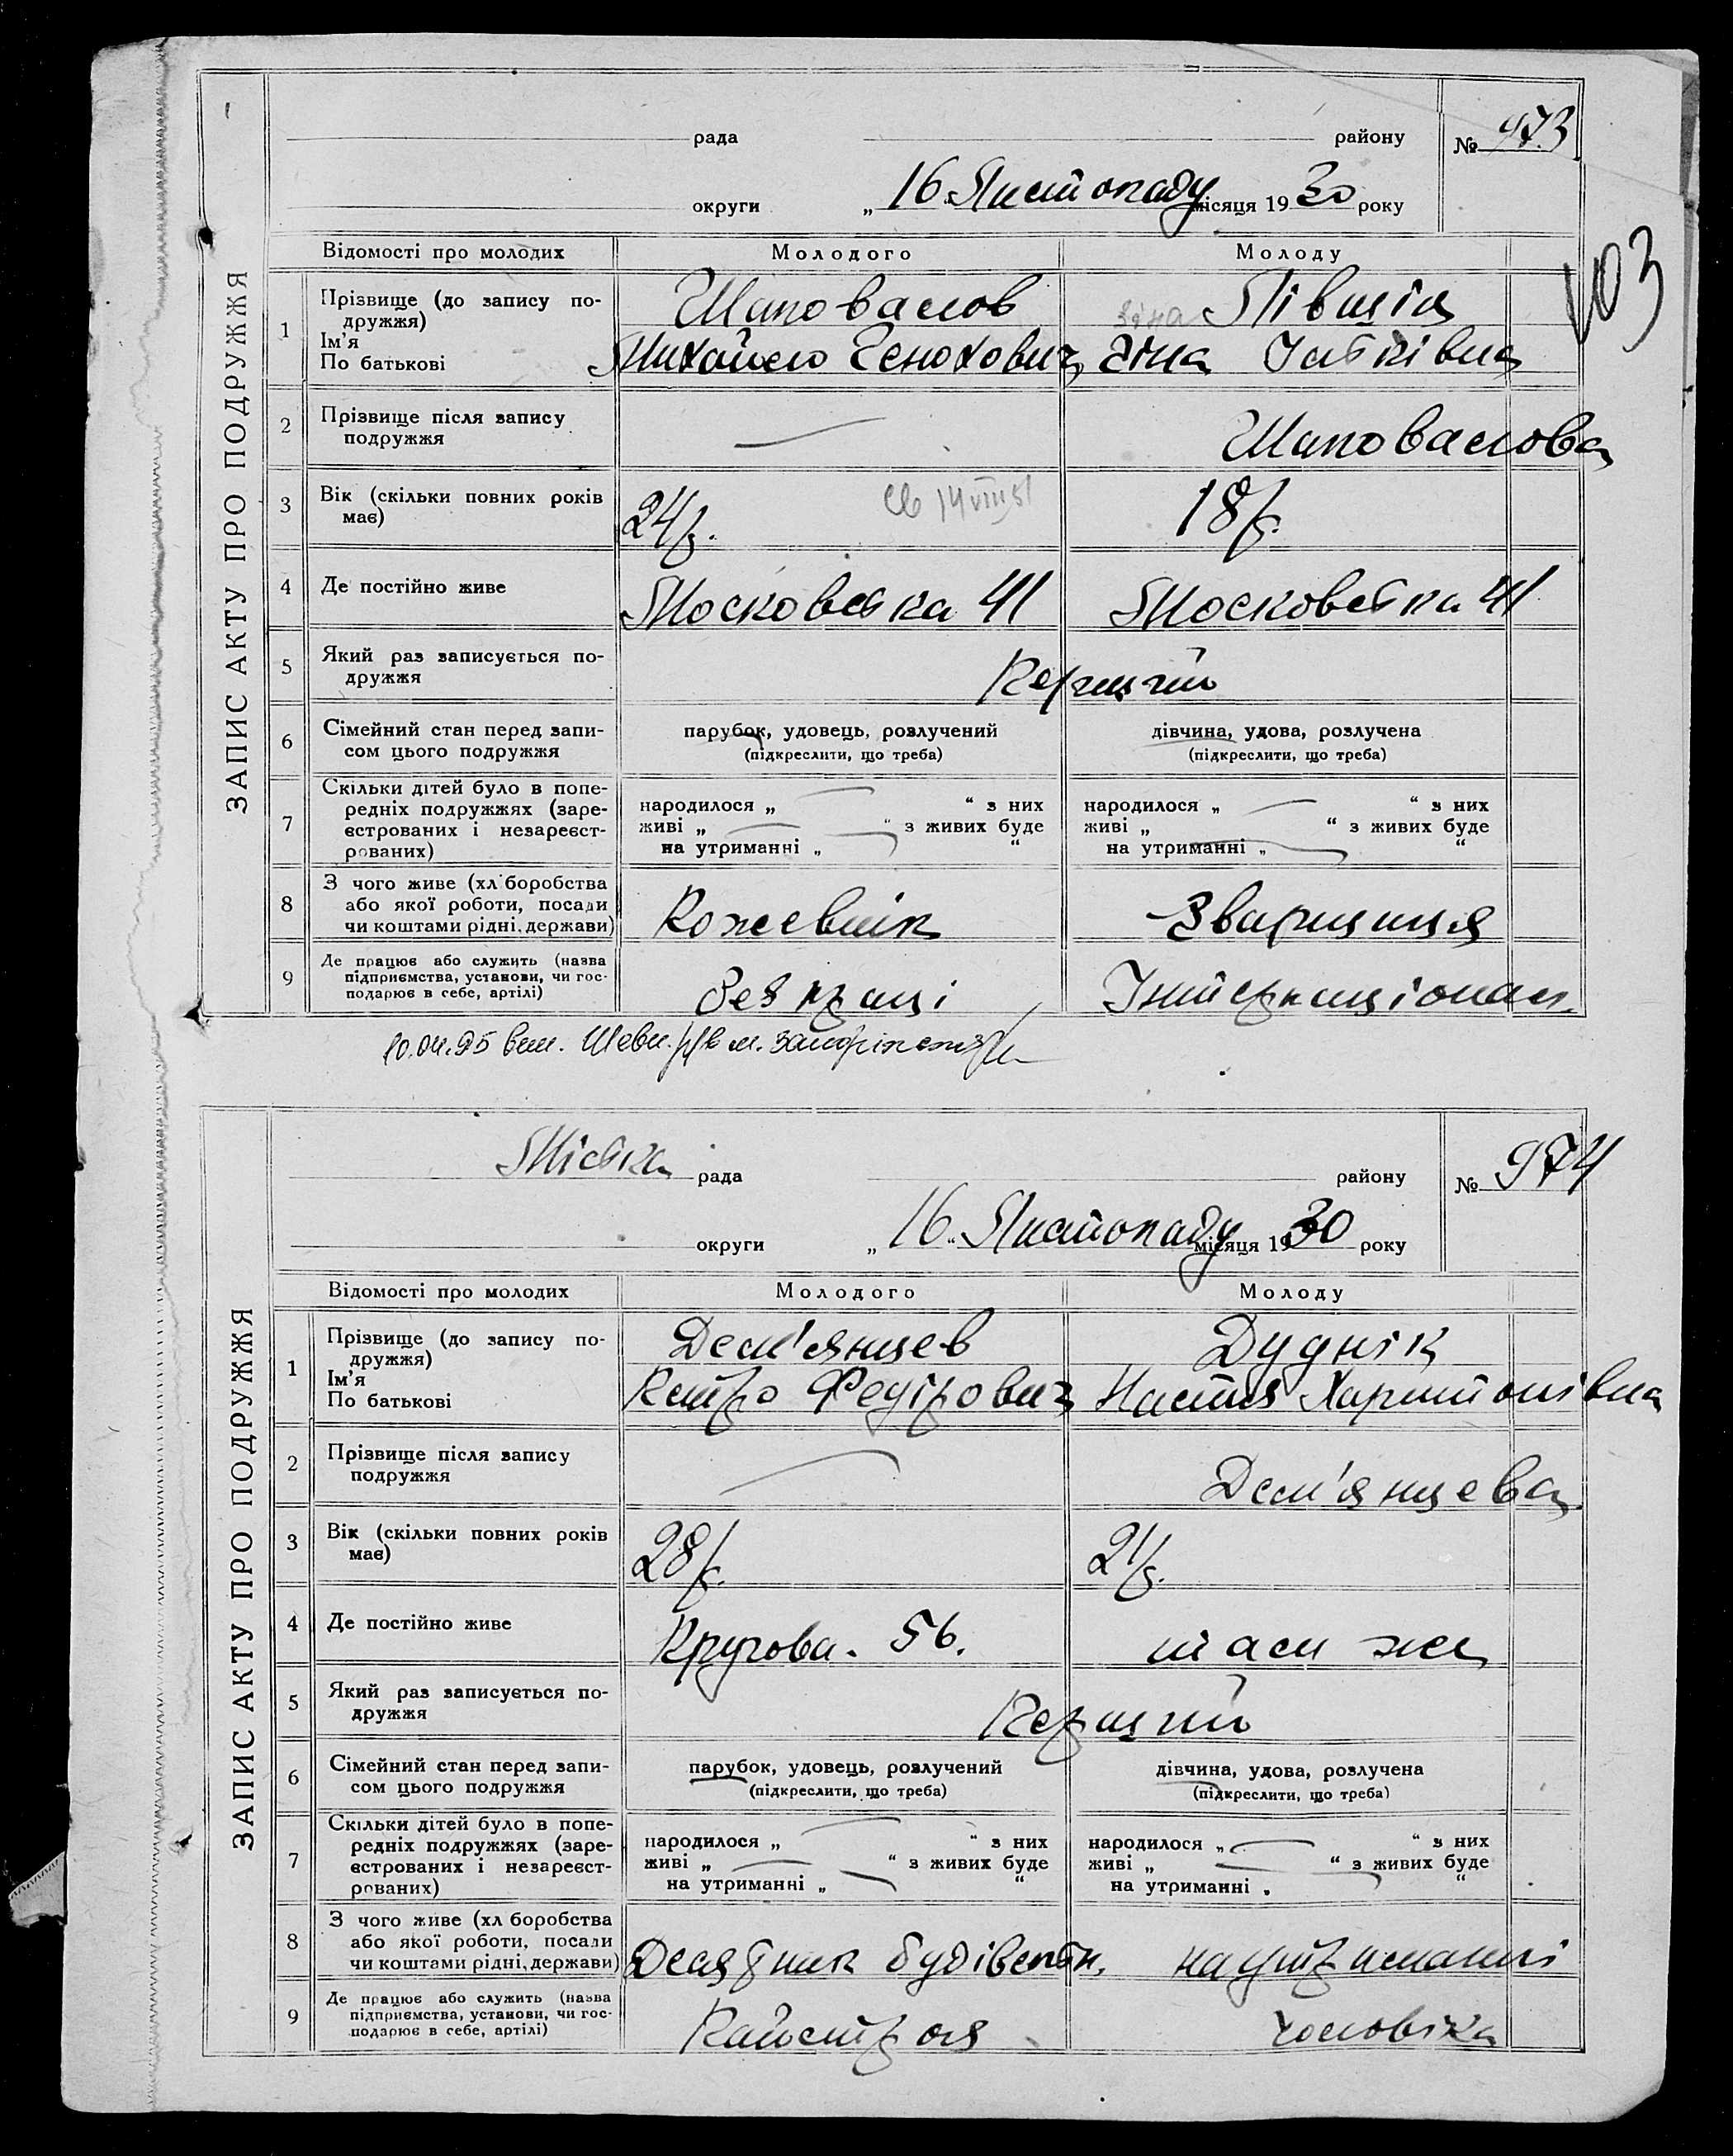 ЗАПИС АКТУ ПРО ПОДРУЖЖЯ
рада району № 973
округи „ 16 “ Листопаду місяця 1930 року
103
Відомості про молодих Молодого Молоду
1 Прізвище (до запису по-дружжя) Шаповалов Півшіц
Ім'я
По батькові Михайло Генохович Зіна
2 Прізвище після запису подружжя — Шаповалова
3 Вік (скільки повних років має) 24 р. 18 р.
4 Де постійно живе Московська 41 Московська 41
5 Який раз записується по-дружжя Перший
6 Сімейний стан перед запи-сом цього подружжя парубок, удовець, розлучений (підкреслити, що треба) дівчина, удова, розлучена (підкреслити, що треба)
7 Скільки дітей було в попе-редніх подружжях (заре-єстрованих і незареєст-рованих) народилося „ — “ з них живі „ — “ з живих буде на утриманні „ — “ народилося „ — “ з них живі „ — “ з живих буде на утриманні „ — “
8 З чого живе (хліборобства або якої роботи, посади чи коштами рідні, держави) Кожевнік Зварщиця
9 Де працює або служить (назва підприємства, установи, чи гос-подарює в себе, артілі) Без праці Інтернаціонал.
10.04.95 вит. Шевч. р/в м. Запоріжжя
ЗАПИС АКТУ ПРО ПОДРУЖЖЯ
Міська рада району № 974
округи „ 16 “ Листопаду місяця 1930 року
Відомості про молодих Молодого Молоду
1 Прізвище (до запису по-дружжя) Дем'янцев Дуднік
Ім'я
По батькові Петро Федірович Настя Харитонівна
2 Прізвище після запису подружжя — Дем'янцева
3 Вік (скільки повних років має) 28 р. 21 р.
4 Де постійно живе Кругова. 56. там же
5 Який раз записується по-дружжя Перший
6 Сімейний стан перед запи-сом цього подружжя парубок, удовець, розлучений (підкреслити, що треба) дівчина, удова, розлучена (підкреслити, що треба)
7 Скільки дітей було в попе-редніх подружжях (заре-єстрованих і незареєст-рованих) народилося „ — “ з них живі „ — “ з живих буде на утриманні „ — “ народилося „ — “ з них живі „ — “ з живих буде на утриманні „ — “
8 З чого живе (хліборобства або якої роботи, посади чи коштами рідні, держави) Десятник будівельн. на утриманні
9 Де працює або служить (назва підприємства, установи, чи гос-подарює в себе, артілі) чоловіка